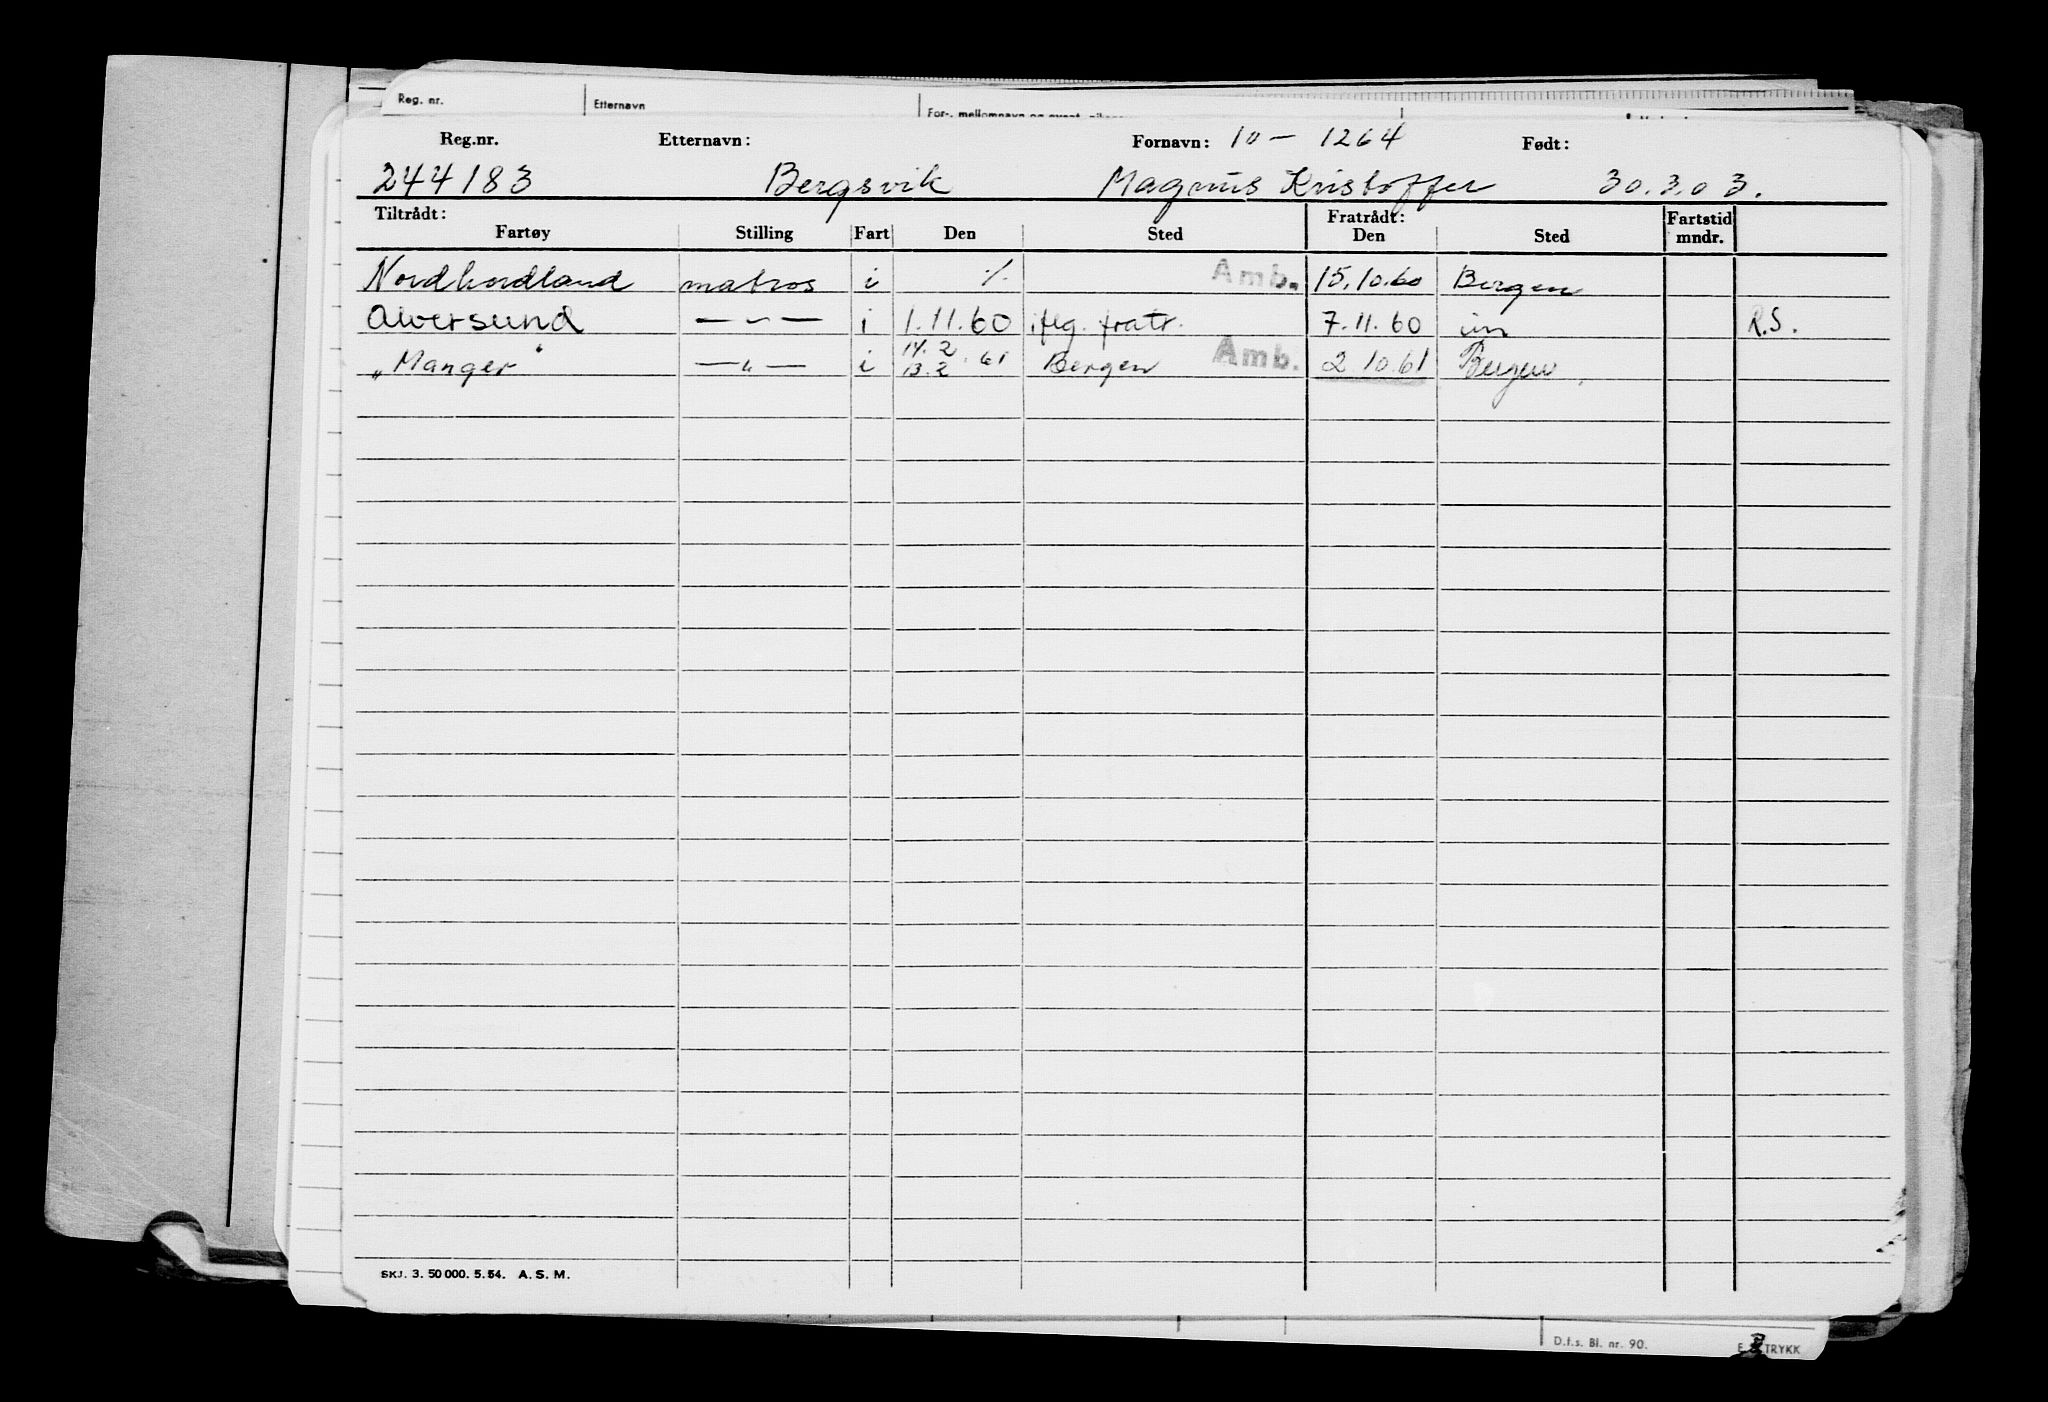 Reg. nr. Etternavn For-, mellomnavn og event.
Reg.nr. Etternavn: Fornavn: 10 - 1264 Født:
244183 Bergsvik Magnus Kristoffer 30.3.03.
Tiltrådt: Fratrådt: Fartstid
Fartøy Stilling Fart Den Sted Den Sted mndr.
Nordhordland matros i ·/· Amb. 15.10.60 Bergen
Alversund — " — i 1.11.60 iflg. fratr. 7.11.60 R.S.
14.2
„Manger" — " — i 13.2 .61 Bergen Amb. 2 10.61 Bergen
SKJ. 3. 50 000. 5. 54. A. S. M.
D.f.s. Bl. nr. 90. TRYKK